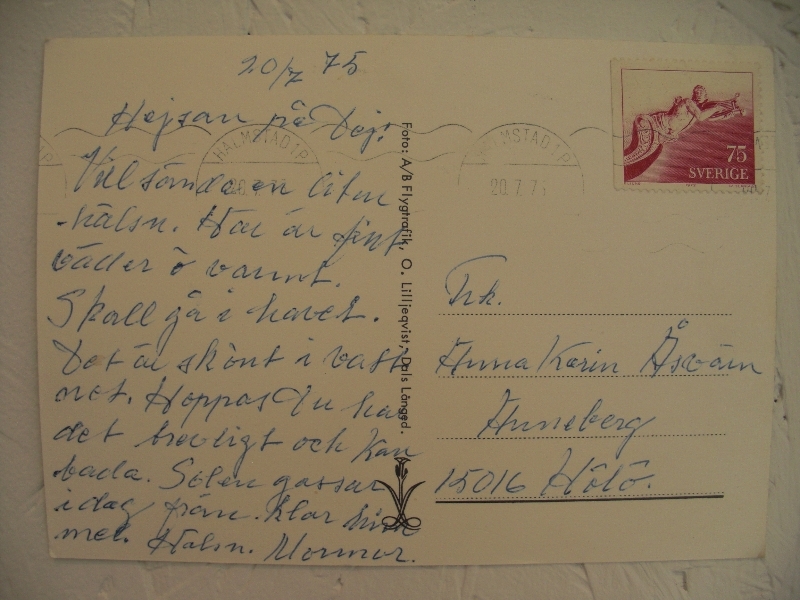 20/7 75
Hejsan på Dej!
Vill sända en liten
hälsn. Här är fint
väder o varmt.
Skall gå i havet.
Det är skönt i vatt
net. Hoppas Du har
det trevligt och kan
bada. Solen gassar
idag från klar him
mel. Hälsn. Mormor.
Foto: A/B Flygtrafik, O. Lilljeqvist, Dals Långed.
HALMSTAD 1 P
20.7.75
HALMSTAD 1 P
20.7.75
75
SVERIGE
Frk.
Anna Karin Åsvärn
Anneberg
15016 Hölö.